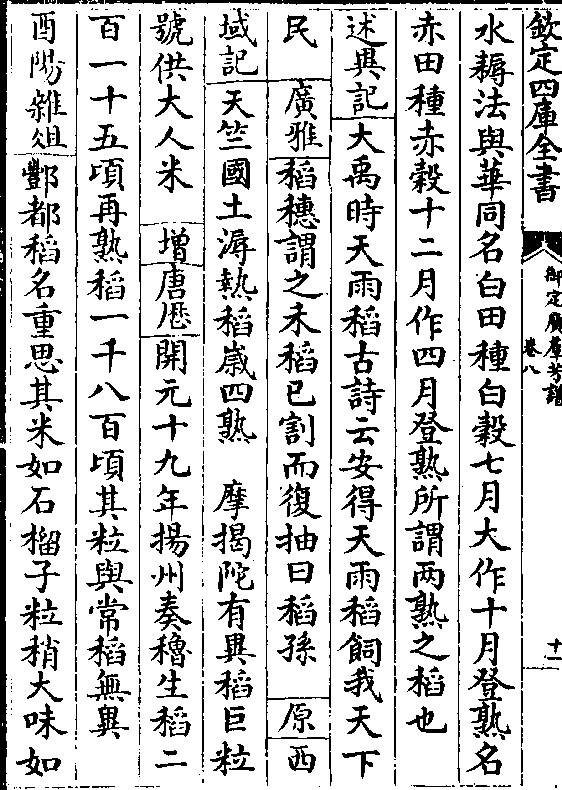 欽定四庫全書
御定廣羣芳譜
卷八
十一
水耨法與華同名白田種白穀七月大作十月登熟名
赤田種赤穀十二月作四月登熟所謂兩熟之稻也
述異記大禹時天雨稻古詩云安得天雨稻飼我天下
民 廣雅稻穗謂之禾稻已割而復抽曰稻孫 原西
域記天竺國土溽熱稻歲四熟 摩揭陀有異稻巨粒
號供大人米 增唐歷開元十九年揚州奏穭生稻二
百一十五頃再熟稻一千八百頃其粒與常稻無異
酉陽雜俎酆都稻名重思其米如石榴子粒稍大味如